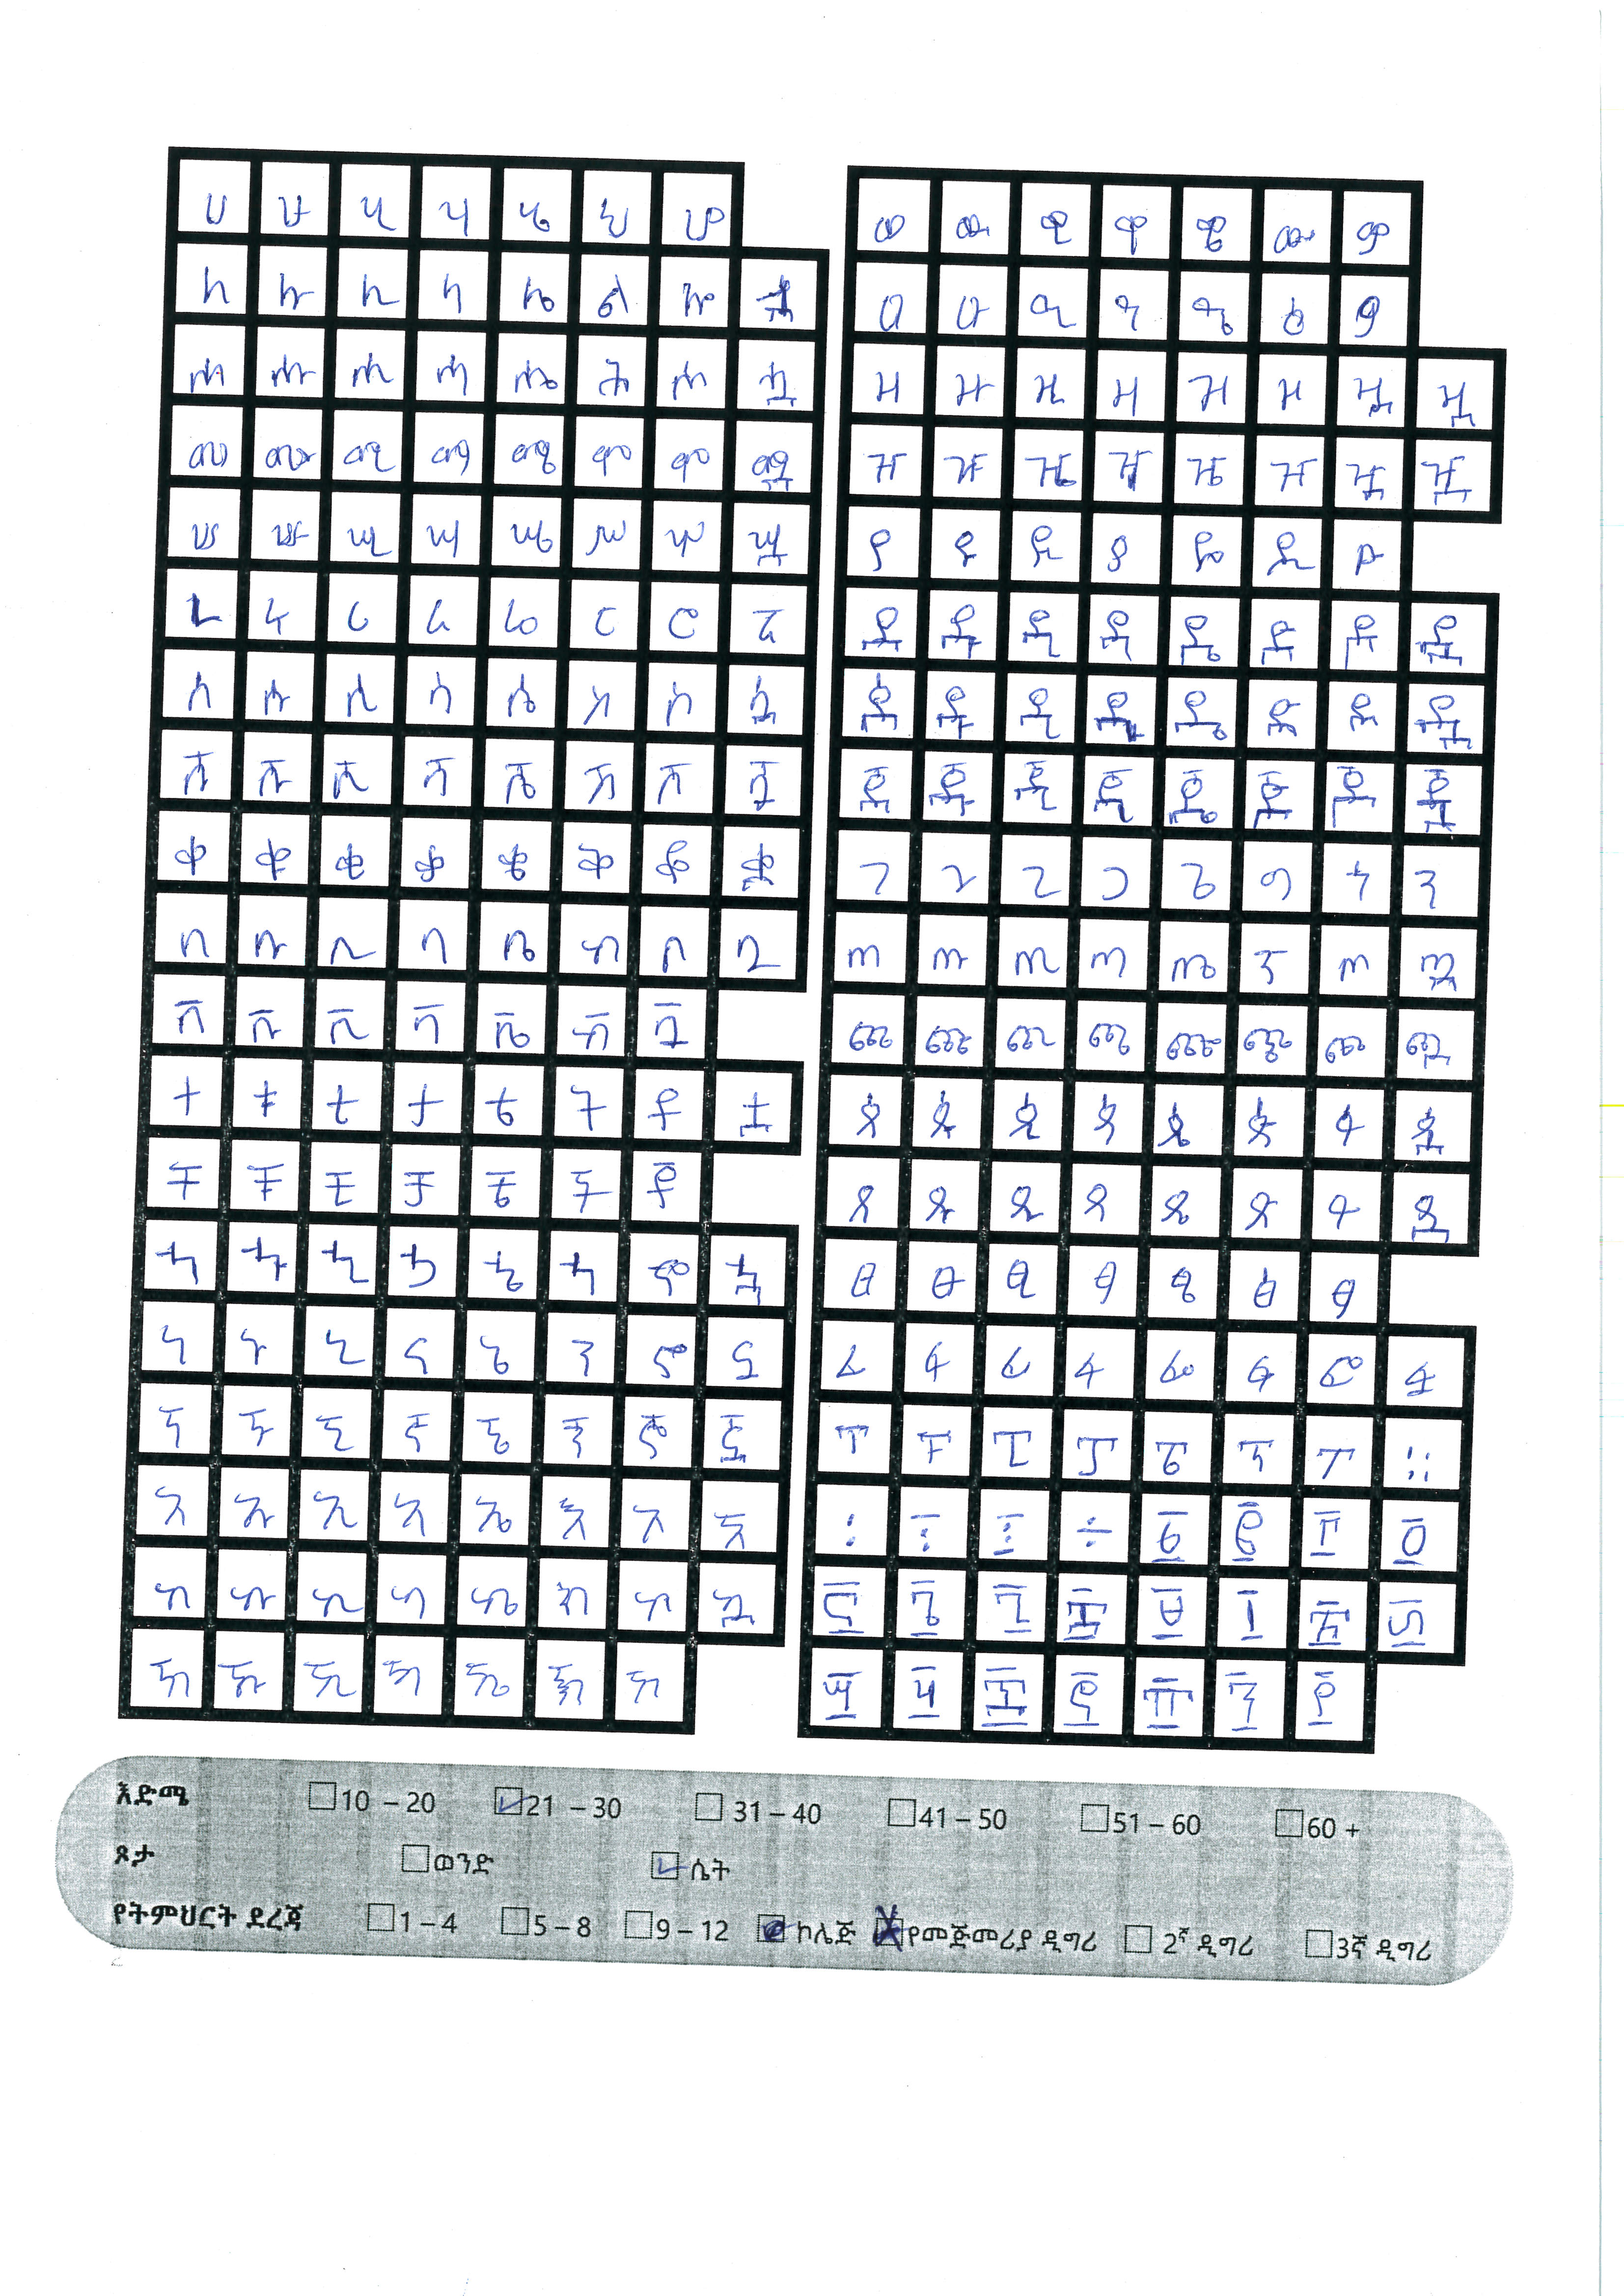 ሀ ሁ ሂ ሃ ሄ ህ ሆ
ለ ሉ ሊ ላ ሌ ል ሎ
ሐ ሑ ሒ ሓ ሔ ሕ ሖ ሗ
መ ሙ ሚ ማ ሜ ም ሞ ሟ
ሠ ሡ ሢ ሣ ሤ ሥ ሦ ሧ
ረ ሩ ሪ ራ ሬ ር ሮ ሯ
ሰ ሱ ሲ ሳ ሴ ስ ሶ ሷ
ሸ ሹ ሺ ሻ ሼ ሽ ሾ ሿ
ቀ ቁ ቂ ቃ ቄ ቅ ቆ ቋ
በ ቡ ቢ ባ ቤ ብ ቦ ቧ
ቨ ቩ ቪ ቫ ቬ ቭ ቯ
ተ ቱ ቲ ታ ቴ ት ቶ ቷ
ቸ ቹ ቺ ቻ ቼ ች ቾ
ኀ ኁ ኂ ኃ ኄ ኅ ኆ ኋ
ነ ኑ ኒ ና ኔ ን ኖ ኗ
ኘ ኙ ኚ ኛ ኜ ኝ ኞ ኟ
አ ኡ ኢ ኣ ኤ እ ኦ ኧ
ከ ኩ ኪ ካ ኬ ክ ኮ ኳ
ኸ ኹ ኺ ኻ ኼ ኽ ኾ
ወ ዉ ዊ ዋ ዌ ው ዎ
ዐ ዑ ዒ ዓ ዔ ዕ ዖ
ዘ ዙ ዚ ዛ ዜ ዝ ዟ ዟ
ዠ ዡ ዢ ዣ ዤ ዥ ዧ ዧ
የ ዩ ዪ ያ ዬ ይ ዮ
ደ ዱ ዲ ዳ ዴ ድ ዶ ዷ
ጀ ጁ ጂ ጃ ጄ ጅ ጆ ጇ
ገ ጉ ጊ ጋ ጌ ግ ጎ ጓ
ጠ ጡ ጢ ጣ ጤ ጥ ጦ ጧ
ጨ ጩ ጪ ጫ ጬ ጭ ጮ ጯ
ጰ ጱ ጲ ጳ ጴ ጵ ጶ ጷ
ጸ ጹ ጺ ጻ ጼ ጽ ጾ ጿ
ፀ ፁ ፂ ፃ ፄ ፅ ፆ
ፈ ፉ ፊ ፋ ፌ ፍ ፎ ፏ
ፐ ፑ ፒ ፓ ፔ ፕ ፖ ።
እድሜ 10 – 20 21 – 30 31 – 40 41 – 50 51 – 60 60 +
ጾታ ወንድ ሴት
የትምህርት ደረጃ 1 – 4 5 – 8 9 – 12 ኮሌጅ የመጀመሪያ ዲግሪ 2ኛ ዲግሪ 3ኛ ዲግሪ